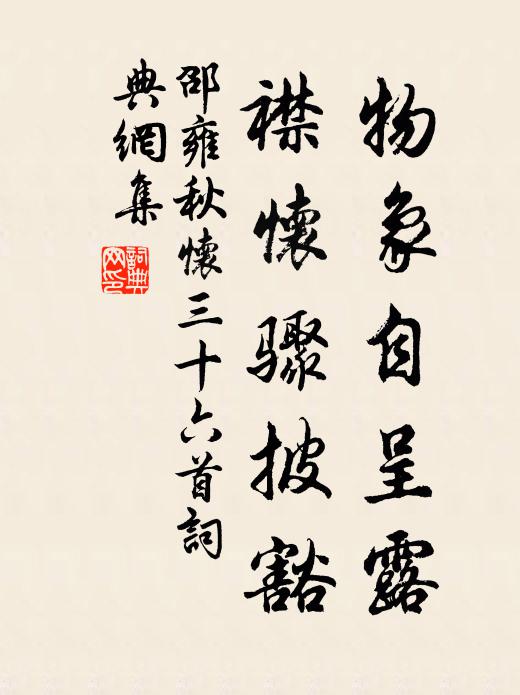 物象自呈露
襟懷驟披豁
邵雍秋懷三十六首詞
典網集
詞典
网印